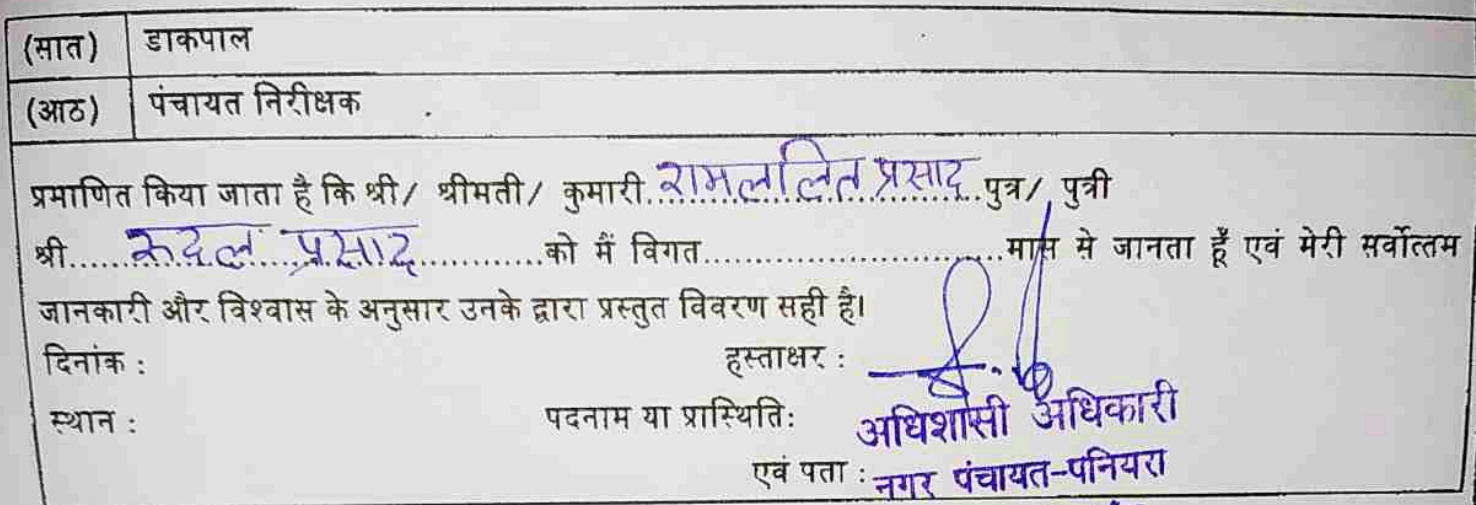 (सात) डाकपाल
(आठ) पंचायत निरीक्षक
प्रमाणित किया जाता है कि श्री/ श्रीमती/ कुमारी.रामललित प्रसाद.पुत्र/ पुत्री
श्री.....रूदल प्रसाद............को मैं विगत.............................मास से जानता हूँ एवं मेरी सर्वोत्तम
जानकारी और विश्वास के अनुसार उनके द्वारा प्रस्तुत विवरण सही है।
दिनांक : हस्ताक्षर :
स्थान : पदनाम या प्रास्थिति: अधिशासी अधिकारी
एवं पता : नगर पंचायत-पनियरा